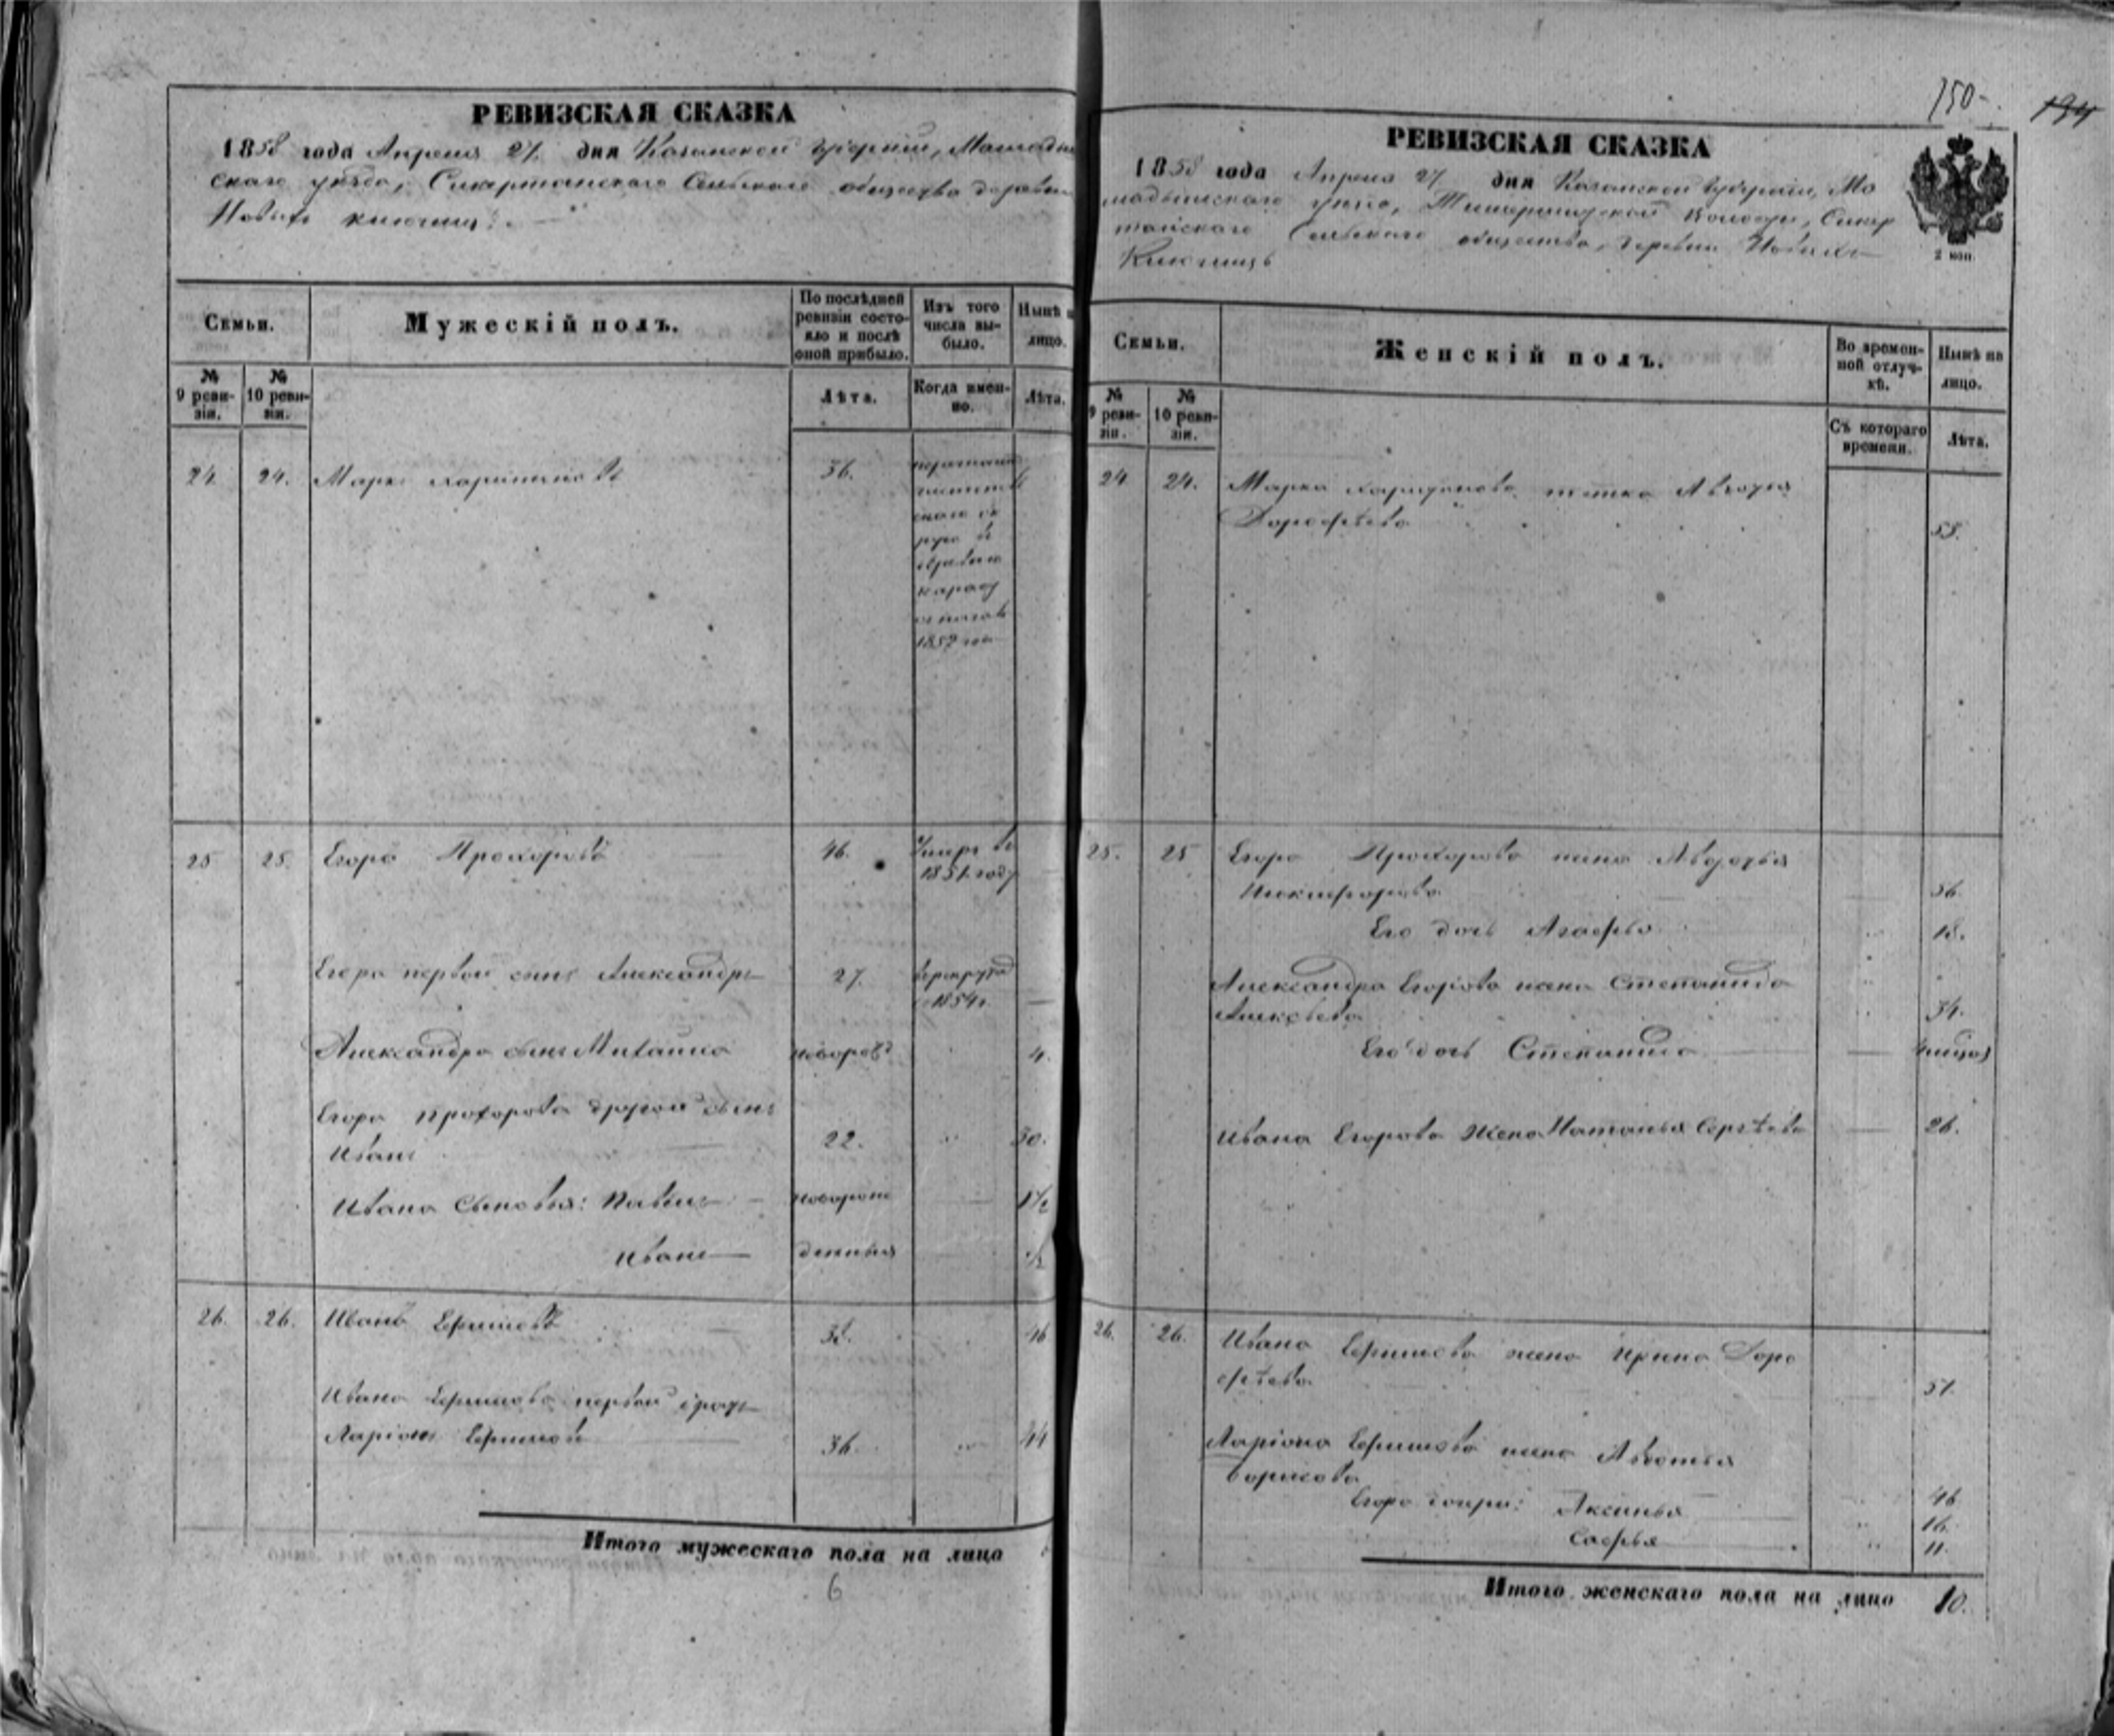 150
194
РЕВИЗСКАЯ СКАЗКА
1858 года Апреля 27 дня Казанской губернии, Мамады
скаго уезда, Сельскаго общества деревни
Новыхъ
Семьи.
Мужескій полъ.
По послѣдней ревизіи состояло и послѣ оной прибыло.
Изъ того числа выбыло.
Нынѣ на лицо.
№ 9 ревизіи.
№ 10 ревизіи.
Лѣта.
Когда именно.
Лѣта.
24 24. Марко Харитоновъ 36.
1857 года
25 25. Егоръ Прохоровъ 46. Умеръ въ
1851 году
Егора первой сынъ Александръ 27. в рекруты
в 1854 г.
Александра сынъ Михайла новорож 4.
Егора Прохорова другой сынъ
Иванъ 22. 30.
Ивана сыновья: Павелъ новорож 1 1/2
Иванъ денныя 1/2
26. 26. Иванъ Ефимовъ 38. 46
Ивана Ефимова первой братъ
Ларіонъ Ефимовъ 36. 44
Итого мужескаго пола на лицо
6
РЕВИЗСКАЯ СКАЗКА
1858 года Апреля 27 дня Казанской губерніи, Ма
мадышскаго уезда, волости,
Сельскаго общества, деревни Новыхъ
2 коп.
Семьи.
Женскій полъ.
Во временной отлучкѣ.
Нынѣ на лицо.
№ 9 ревизіи.
№ 10 ревизіи.
Съ котораго времени.
Лѣта.
24 24. Марка Харитонова тетка Авдотья
Дорофѣева 58.
25. 25 Егора Прохорова жена Авдотья
Никифорова 56.
Его дочь Агафья 18.
Александра Егорова жена Степанида
Алексѣева 34.
Его дочь Степанида
Ивана Егорова жена Наталья Сергѣева 26.
26. 26. Ивана Ефимова жена Ирина Доро
фѣева 51.
Ларіона Ефимова жена Авдотья
Борисова 46
Его дочери: Аксинья 16.
Софья 11.
Итого женскаго пола на лицо 10.